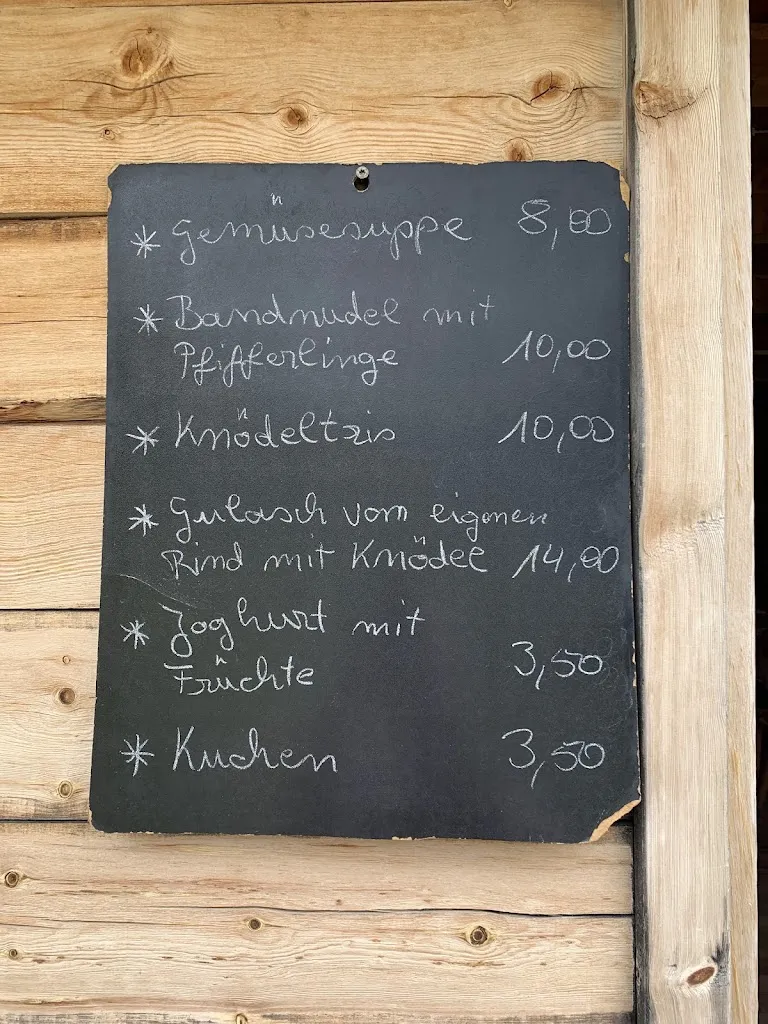 * Gemüsesuppe 8,00
* Bandnudel mit
Pfifferlinge 10,00
* Knödeltris 10,00
* Gulasch vom eigenen
Rind mit Knödel 14,00
* Joghurt mit
Früchte 3,50
* Kuchen 3,50